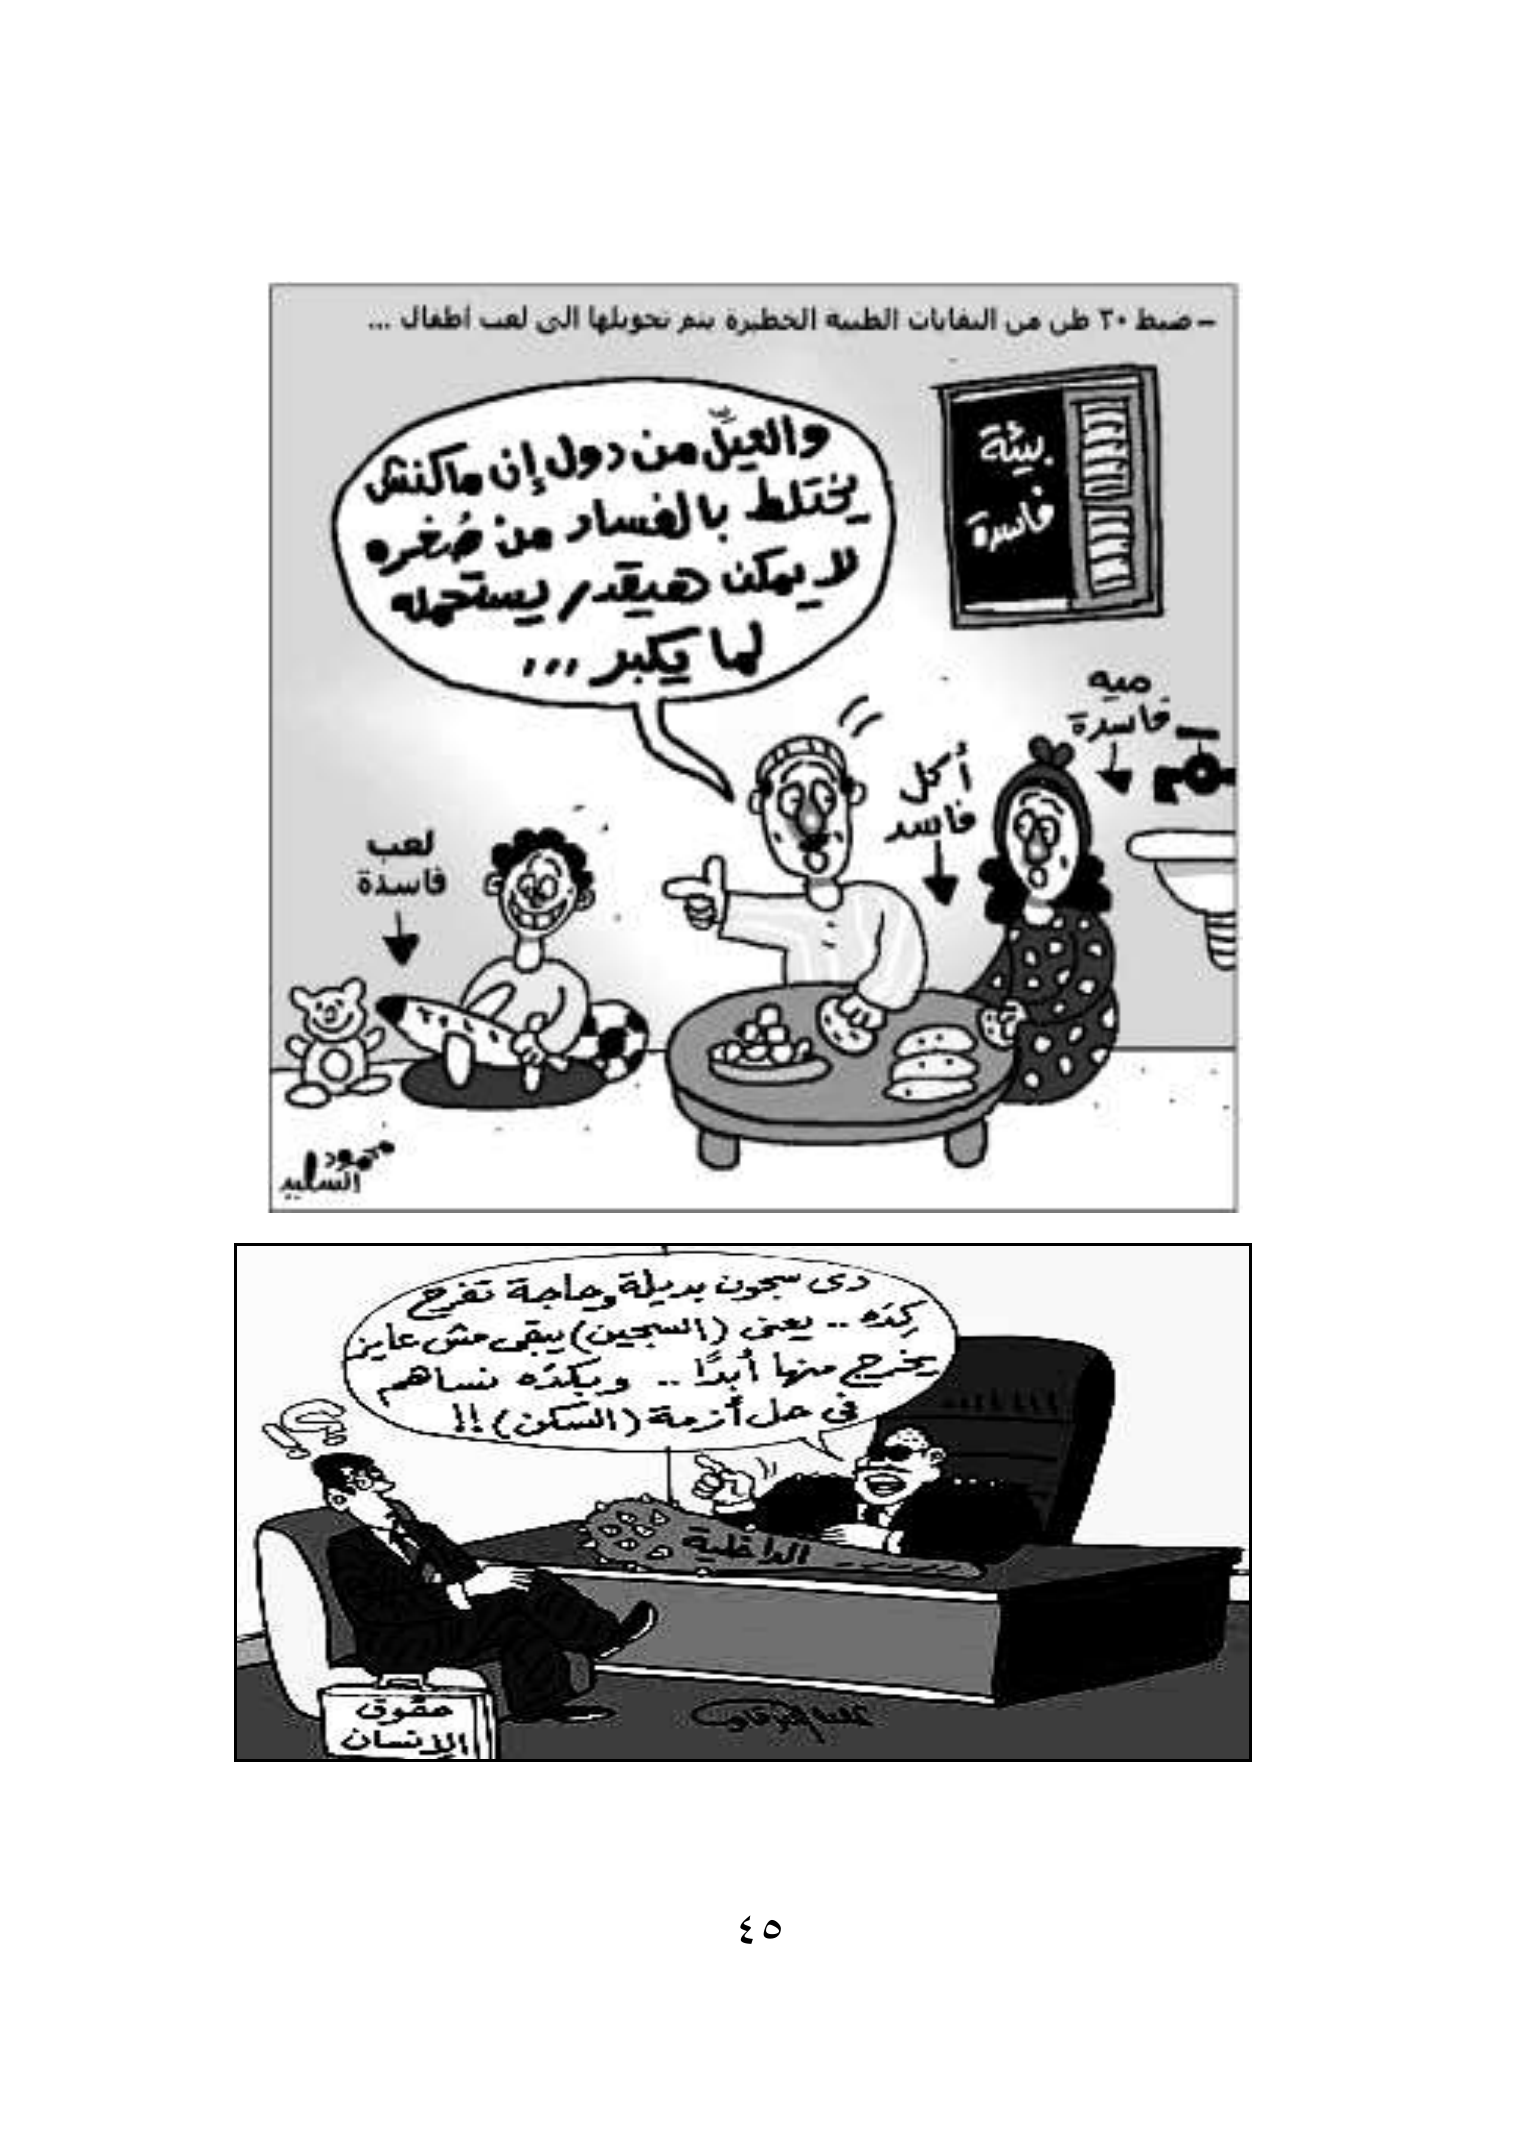 – ضبط ٣٠ طن من النفايات الطبية الخطيرة يتم تحويلها الى لعب أطفال ...
والعيّل من دول إن ماكنش
يختلط بالفساد من صُغره
لا يمكن هيقدر يستحمله
لما يكبر ...
بيئة
فاسدة
ميه
فاسدة
أكل
فاسد
لعب
فاسدة
محمود
السليم
دى سجون بديلة وحاجة تفرح
كِده .. يعنى (السجين) يبقى مش عايز
يخرج منها أبدًا .. وبكده نساهم
فى حل أزمة (السكن) !!
الداخلية
حقوق
الإنسان
٤٥